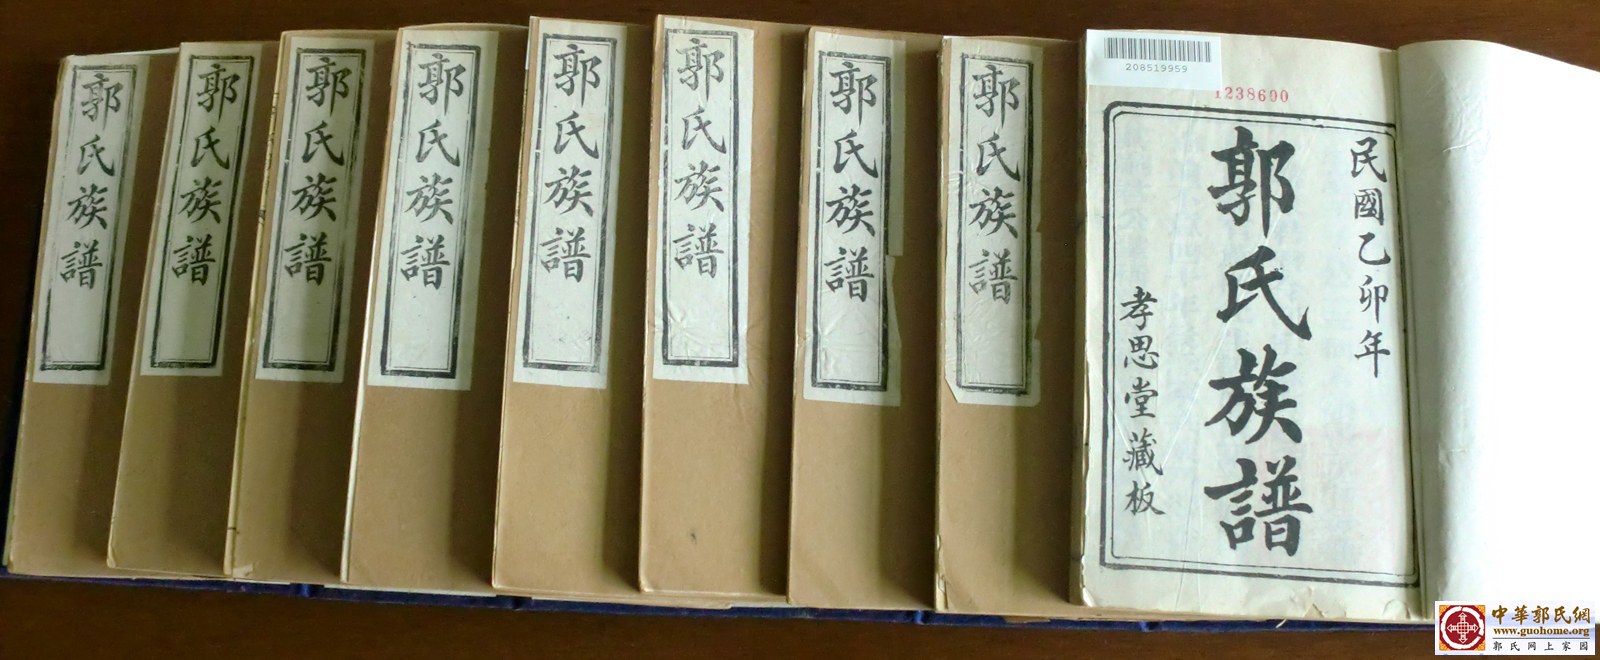 郭氏族譜
郭氏族譜
郭氏族譜
郭氏族譜
郭氏族譜
郭氏族譜
郭氏族譜
郭氏族譜
208519959
1238690
民國乙卯年
郭氏族譜
孝思堂藏板
中華郭氏網
www.guohome.org
郭氏网上家园